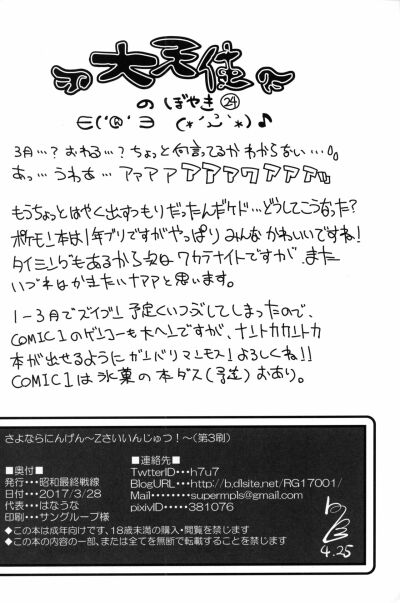 大天使
のぼやき㉔
∈('®'∋ (*´ω`*)♪
3月…？おわる…？ちょっと何言ってるかわからない…。
あっ…うわぁ…アァアァアアアワアアァ
もうちょっとはやく出すつもりだったんだケド…どうしてこうなった？
ポケモン本は1年ブリですがやっぱりみんなかわいいですね！
タイミングもあるから次はワカラナイトですが、また
いづれはかきたいナァアと思います。
1-3月でズイブン予定くいつぶしてしまったので、
COMIC1のゲンコーも大ヘンですが、ナントカカントカ
本が出せるようにガンバリマンモス！よろしくね!!
COMIC1は氷菓の本ダス(予定)おあり。
さよならにんげん～Zさいいんじゅつ！～(第3刷)
■奥付
発行・・・昭和最終戦線
日付・・・2017/3/28
代表・・・はなうな
印刷・・・サングループ様
■連絡先
TwtterID・・・h7u7
BlogURL・・・http://b.dlsite.net/RG17001/
Mail・・・・・・・supermpls@gmail.com
pixivID・・・・381076
◆この本は成年向けです、18歳未満の購入・閲覧を禁じます
◆この本の内容の一部、または全てを無断で転載することを禁じます
4.25